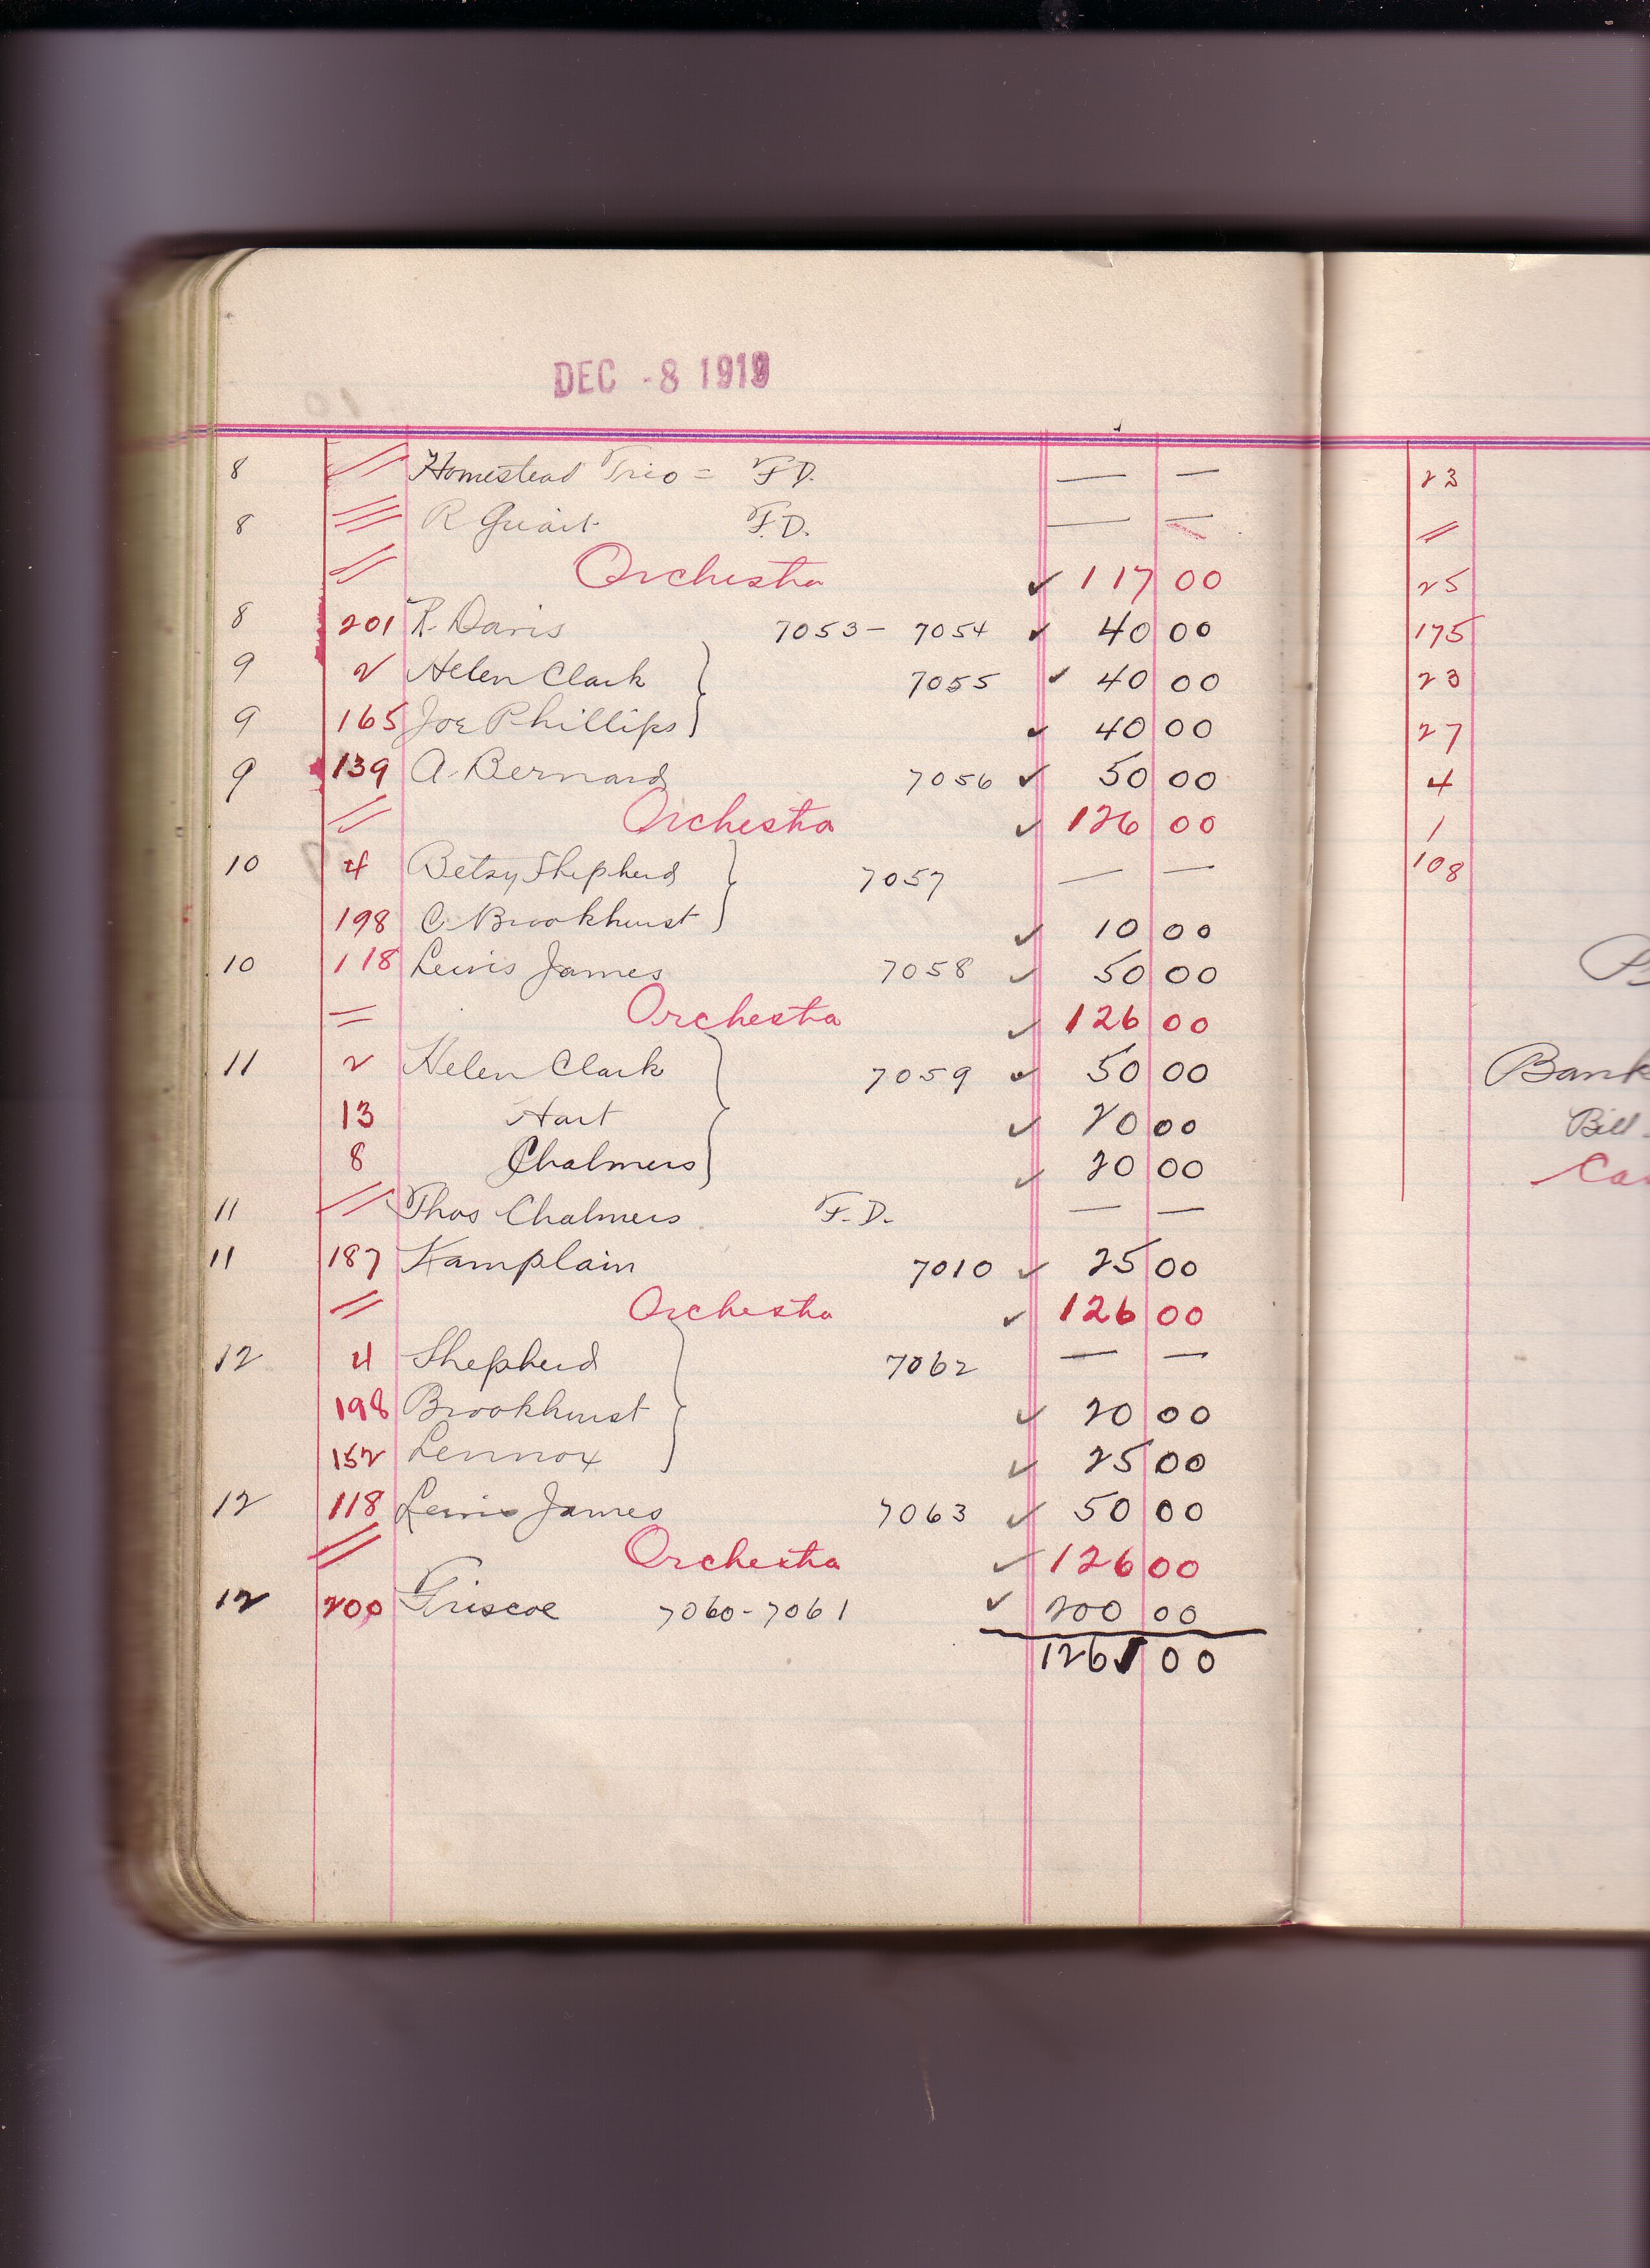 DEC -8 1919
8 // Homestead Trio = F.D. — —
8 /// R Quait F.D. — —
// Orchestra ✓ 117 00
8 201 R. Davis 7053 - 7054 ✓ 40 00
9 2 Helen Clark } 7055 ✓ 40 00
9 165 Joe Phillips } ✓ 40 00
9 139 A. Bernard 7056 ✓ 50 00
// Orchestra ✓ 126 00
10 4 Betsy Shepherd } 7057 — —
198 C. Brookhurst } ✓ 10 00
10 118 Lewis James 7058 ✓ 50 00
= Orchestra ✓ 126 00
11 2 Helen Clark } 7059 ✓ 50 00
13 Hart ✓ 20 00
8 Chalmers } ✓ 20 00
11 // Thos Chalmers F.D. — —
11 187 Kamplain 7010 ✓ 25 00
// Orchestra ✓ 126 00
12 4 Shepherd } 7062 — —
198 Brookhurst ✓ 20 00
152 Lennox } ✓ 25 00
12 118 Lewis James 7063 ✓ 50 00
// Orchestra ✓ 126 00
12 200 Griscoe 7060 - 7061 ✓ 200 00
1261 00
23
//
25
175
23
27
4
1
108
Bank
Bill